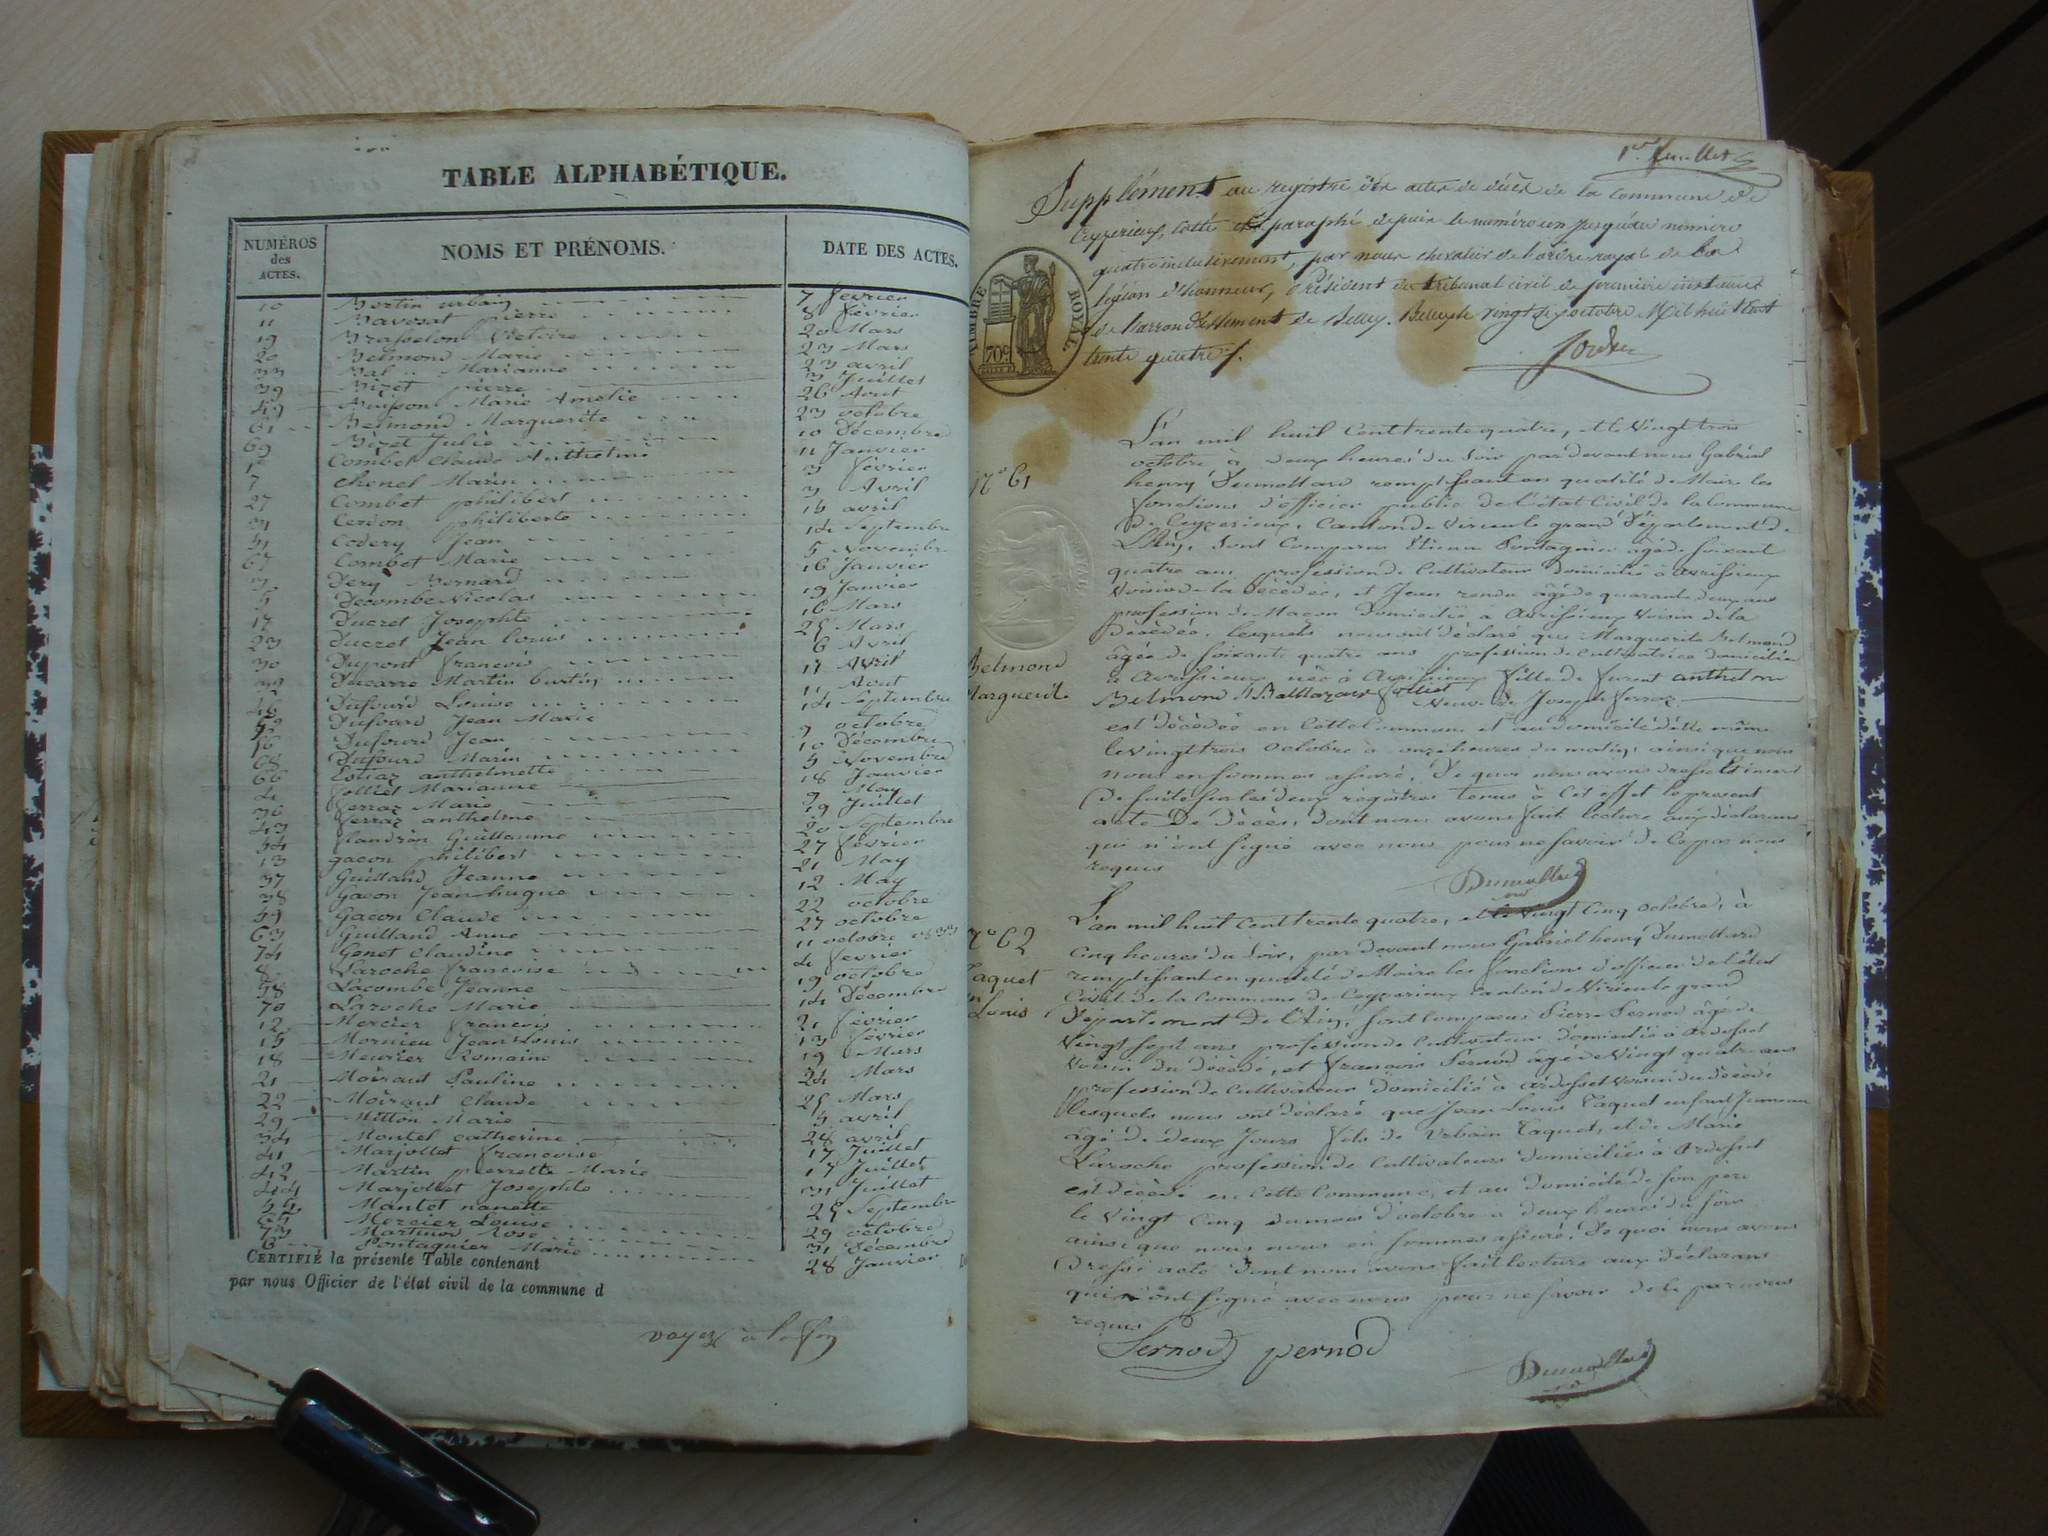 TABLE ALPHABÉTIQUE.
NUMÉROS
des
ACTES.
NOMS ET PRÉNOMS.
DATE DES ACTES.
10 Bertin urbain 7 février
11 Bavosat pierre 8 février
19 Brasselon Victoire 20 Mars
20 Belmond Marie 23 Mars
33 Bal Marianne 23 avril
39 Bizet pierre 3 Juillet
49 Buisson Marie Amelie 26 Aout
61 Belmond Marguerite 23 octobre
69 Bizet Julie 10 Décembre
1 Combet Claude Anthelme 11 Janvier
7 Chenel Marin 3 février
27 Combet philibert 3 Avril
31 Cerdon philiberte 16 avril
51 Codery Jean 14 Septembre
67 Combet Marie 5 Novembre
3 Dery Bernard 16 Janvier
5 Decombe Nicolas 19 Janvier
17 Ducret Josephte 16 Mars
23 Ducret Jean Louis 25 Mars
30 Dupont francois 6 Avril
Ducarre Martin 11 Avril
46 Dufourd Louise 11 Aout
52 Dufourd Jean Marie 14 Septembre
56 Dufourd Jean 9 octobre
68 Dufourd Marin 10 Décembre
66 anthelmette 5 Novembre
4 Jolliet Marianne 18 Janvier
36 ferraz Marie 9 May
43 ferraz anthelme 19 Juillet
54 flandrin Guillaume 20 Septembre
13 gacon philibert 27 février
37 Guilland Jeanne 21 May
38 Gacon Jean hugue 12 May
59 Gacon Claude 22 octobre
63 Guilland Anne 27 octobre
74 Genet Claudine 11 octobre
8 Laroche francoise 4 février
58 Lacombe Jeanne 19 octobre
70 Laroche Marie 14 Décembre
12 Mercier francois 21 février
15 Mornieu Jean Louis 13 février
18 Meurier Romaine 19 Mars
21 Moiraud Pauline 24 Mars
22 Moiraud Claude 25 Mars
29 Mitton Marie 5 avril
34 Montel catherine 28 avril
41 Marjollet francoise 17 Juillet
42 Martin pierrette Marie 17 Juillet
44 Marjollet Josephte 31 Juillet
55 Mantet nanette 25 Septembre
65 Mercier Louise 29 octobre
73 Martinod Rose 31 Décembre
6 Pontagnier Marie 28 Janvier
CERTIFIÉ la présente Table contenant
par nous Officier de l'état civil de la commune d
voyez à la fin
1er feuillet
Supplément au registre des actes de décès de la commune de
Ceyzerieux, cotté et paraphé depuis le numéro un jusqu'au numéro
quatre inclusivement, par nous chevalier de l'ordre royal de la
légion d'honneur, Président du tribunal civil de première instance
de l'arrondissement de Belley. Belley le vingt octobre Mil huit Cent
trente quatre.
TIMBRE ROYAL
70c
N° 61
Belmond
Marguerite
L'an mil huit Cent trente quatre, et le Vingt trois
octobre à deux heures du Soir par devant nous Gabriel
henry Dumollard remplissant en qualité de Maire les
fonctions d'officier public de l'état Civil de la Commune
de Ceyzerieux, Canton de Virieu le grand Département de
L'Ain, Sont Comparus Etienne Pontagnier âgé de Soixante
quatre ans profession de Cultivateur domicilié à avrissieux
Voisin de la Décédée, et Jean rendu âgé de quarante deux ans
profession de Maçon Domicilié à Avrissieux Voisin de la
Décédée, lesquels nous ont déclaré que Marguerite Belmond
âgée de soixante quatre ans profession de Cultivatrice domiciliée
à Avrissieux née à Avrissieux fille de furent anthelme
Belmond Jolliet Veuve de Joseph ferraz
est décédée en Cette Commune et au domicile d'elle même
le Vingt trois Octobre à onze heures du matin, ainsi que nous
nous en sommes assuré, De quoi nous avons dressé et inscrit
de suite sur les deux registres tenus à Cet effet le present
acte De Décès, dont nous avons fait lecture aux déclarans
qui n'ont signé avec nous pour ne savoir de Ce par nous
requis
Dumollard
N° 62
Taquet
Jn Louis
L'an mil huit Cent trente quatre, et le Vingt Cinq Octobre, à
Cinq heures du Soir, par devant nous Gabriel henry Dumollard
remplissant en qualité de Maire les fonctions d'officier de l'état
Civil de la Commune de Ceyzerieux Canton de Virieu le grand
Département De L'Ain, sont Comparus Pierre Pernod âgé de
Vingt sept ans profession de Cultivateur domicilié à Ardosset
Voisin du décédé, et françois Pernod âgé de Vingt quatre ans
profession de Cultivateur domicilié à Ardosset Voisin du décédé
lesquels nous ont déclaré que Jean Louis Taquet enfant Jumeau
âgé de deux Jours fils de Urbain Taquet, et de Marie
Laroche profession de Cultivateurs domiciliés à Ardosset
est décédé en Cette Commune, et au domicile de son père
le Vingt Cinq du mois d'octobre à deux heures du soir
ainsi que nous nous en sommes assuré, De quoi nous avons
Dressé acte dont nous avons fait lecture aux Déclarans
qui ont signé avec nous pour ne savoir de Ce par nous
requis
Pernod pernod
Dumollard